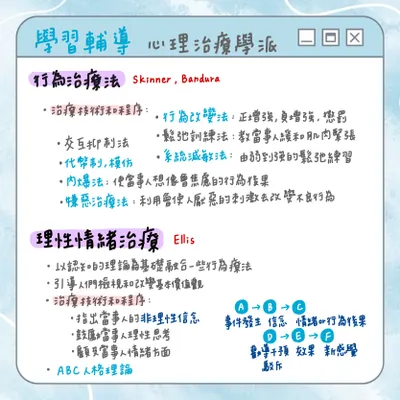 學習輔導 心理治療學派
行為治療法 Skinner, Bandura
・治療技術和程序:
・行為改變法:正增強,負增強,懲罰
・交互抑制法
・鬆弛訓練法:教當事人緩和肌肉緊張
・代幣制,模仿
・系統減敏法:由弱到強的鬆弛練習
・內爆法:使當事人想像會焦慮的行為後果
・嫌惡治療法:利用會使人厭惡的刺激去改變不良行為
理性情緒治療 Ellis
・以認知的理論為基礎融合一些行為療法
・引導人們檢視和改變基本價值觀
・治療技術和程序:
・指出當事人的非理性信念
・鼓勵當事人理性思考
・顧及當事人情緒方面
・ABC人格理論
A→B→C
事件發生 信念 情緒和行為後果
D→E→F
勸導干預 效果 新感覺
駁斥